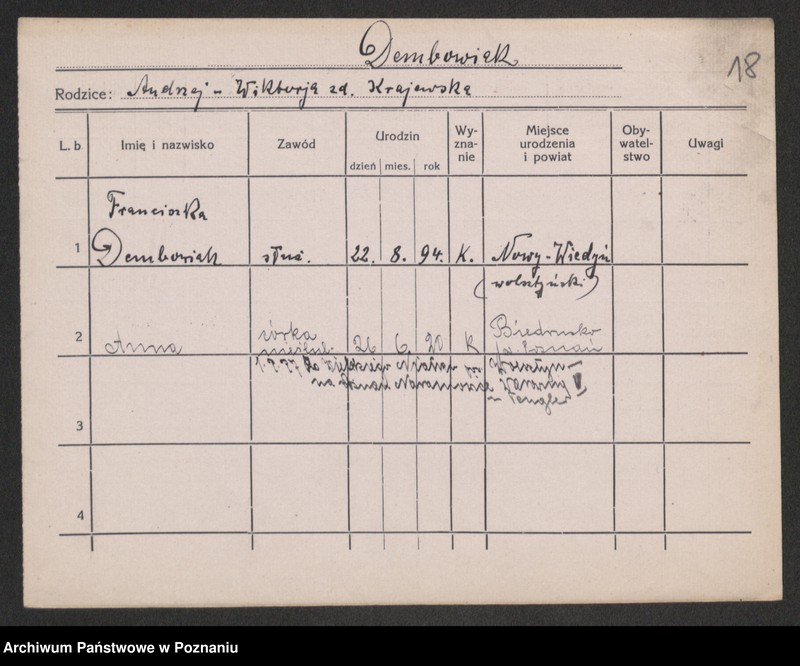 Dembowiak
18
Rodzice: Andrzej - Wiktorja zd. Krajewska
L. b. Imię i nazwisko Zawód Urodzin dzień mies. rok Wy-zna-nie Miejsce urodzenia i powiat Oby-watel-stwo Uwagi
Franciszka
1 Dembowiak służ. 22. 8. 94. K. Nowy-Wiedyń
(wolsztyński)
córka Biedrusko
2 Anna nieślub. 26 6 20 K Poznań
1.9.27 do
na Naramowice
3
4
Archiwum Państwowe w Poznaniu